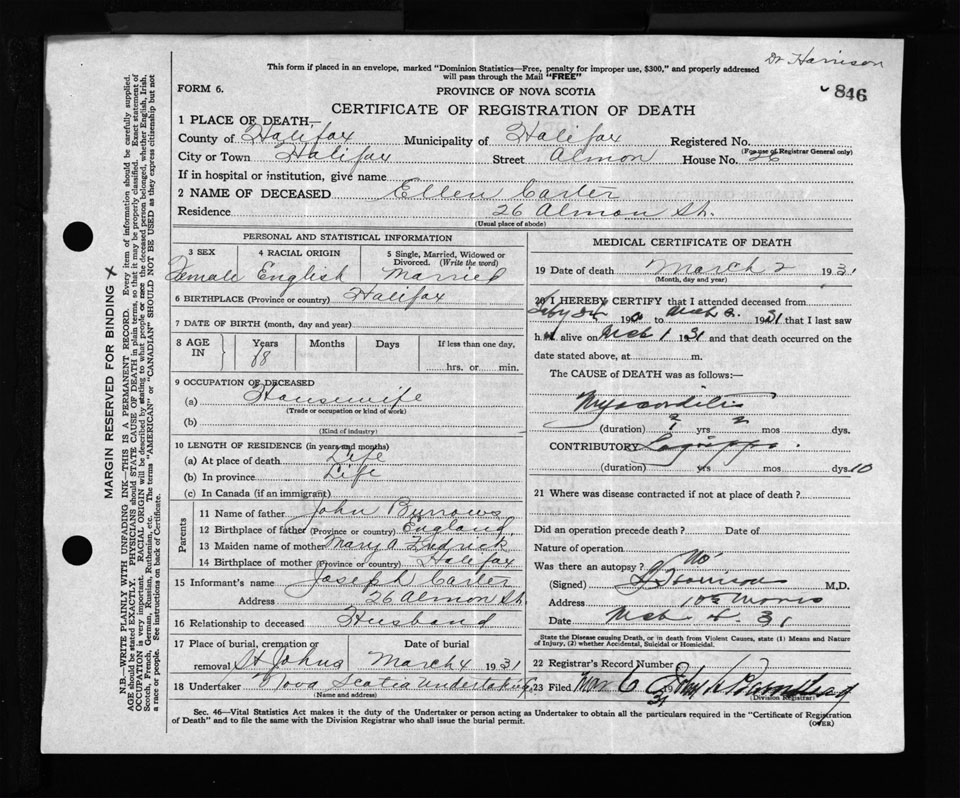 Dr Harrison
This form if placed in an envelope, marked "Dominion Statistics—Free, penalty for improper use, $300," and properly addressed
will pass through the Mail "FREE"
846
FORM 6.
PROVINCE OF NOVA SCOTIA
CERTIFICATE OF REGISTRATION OF DEATH
1 PLACE OF DEATH—
County of Halifax Municipality of Halifax Registered No.
(For use of Registrar General only)
City or Town Halifax Street Almon House No. 26
If in hospital or institution, give name
2 NAME OF DECEASED Ellen Carter
Residence 26 Almon St.
(Usual place of abode)
PERSONAL AND STATISTICAL INFORMATION
3 SEX 4 RACIAL ORIGIN 5 Single, Married, Widowed or
Divorced. (Write the word)
Female English Married
6 BIRTHPLACE (Province or country) Halifax
7 DATE OF BIRTH (month, day and year)
8 AGE IN Years Months Days If less than one day,
hrs. or min.
9 OCCUPATION OF DECEASED
(a) Housewife
(Trade or occupation or kind of work)
(b)
(Kind of industry)
10 LENGTH OF RESIDENCE (in years and months)
(a) At place of death Life
(b) In province Life
(c) In Canada (if an immigrant)
Parents
11 Name of father John Burrows
12 Birthplace of father (Province or country) England
13 Maiden name of mother Mary A
14 Birthplace of mother (Province or country) Halifax
15 Informant's name Joseph Carter
Address 26 Almon St.
16 Relationship to deceased Husband
17 Place of burial, cremation or Date of burial
removal St Johns March 4 1931
18 Undertaker Nova Scotia Undertaking
(Name and address)
MEDICAL CERTIFICATE OF DEATH
19 Date of death March 2 1931
(Month, day and year)
20 I HEREBY CERTIFY that I attended deceased from
to Mch 2. 1931 that I last saw
h alive on Mch 1 1931 and that death occurred on the
date stated above, at m.
The CAUSE of DEATH was as follows:—
Myocarditis
(duration) yrs mos dys.
CONTRIBUTORY Lagrippe.
(duration) yrs mos dys. 10
21 Where was disease contracted if not at place of death?
Did an operation precede death? Date of
Nature of operation
Was there an autopsy? No
(Signed) M.D.
Address
Date Mch 4. 31
State the Disease causing Death, or in death from Violent Causes, state (1) Means and Nature
of Injury, (2) whether Accidental, Suicidal or Homicidal.
22 Registrar's Record Number
23 Filed Mar 6 1931
(Division Registrar)
Sec. 46—Vital Statistics Act makes it the duty of the Undertaker or person acting as Undertaker to obtain all the particulars required in the "Certificate of Registration
of Death" and to file the same with the Division Registrar who shall issue the burial permit.
(OVER)
MARGIN RESERVED FOR BINDING
N.B.—WRITE PLAINLY WITH UNFADING INK—THIS IS A PERMANENT RECORD. Every item of information should be carefully supplied.
AGE should be stated EXACTLY. PHYSICIANS should STATE CAUSE OF DEATH in plain terms, so that it may be properly classified. Exact statement of
OCCUPATION is very important. RACIAL ORIGIN will be described by stating to what people or race the deceased person belonged, whether English, Irish,
Scotch, French, German, Russian, Ruthenian, etc. The terms "AMERICAN" or "CANADIAN" SHOULD NOT BE USED as they express citizenship but not
a race or people. See instructions on back of Certificate.